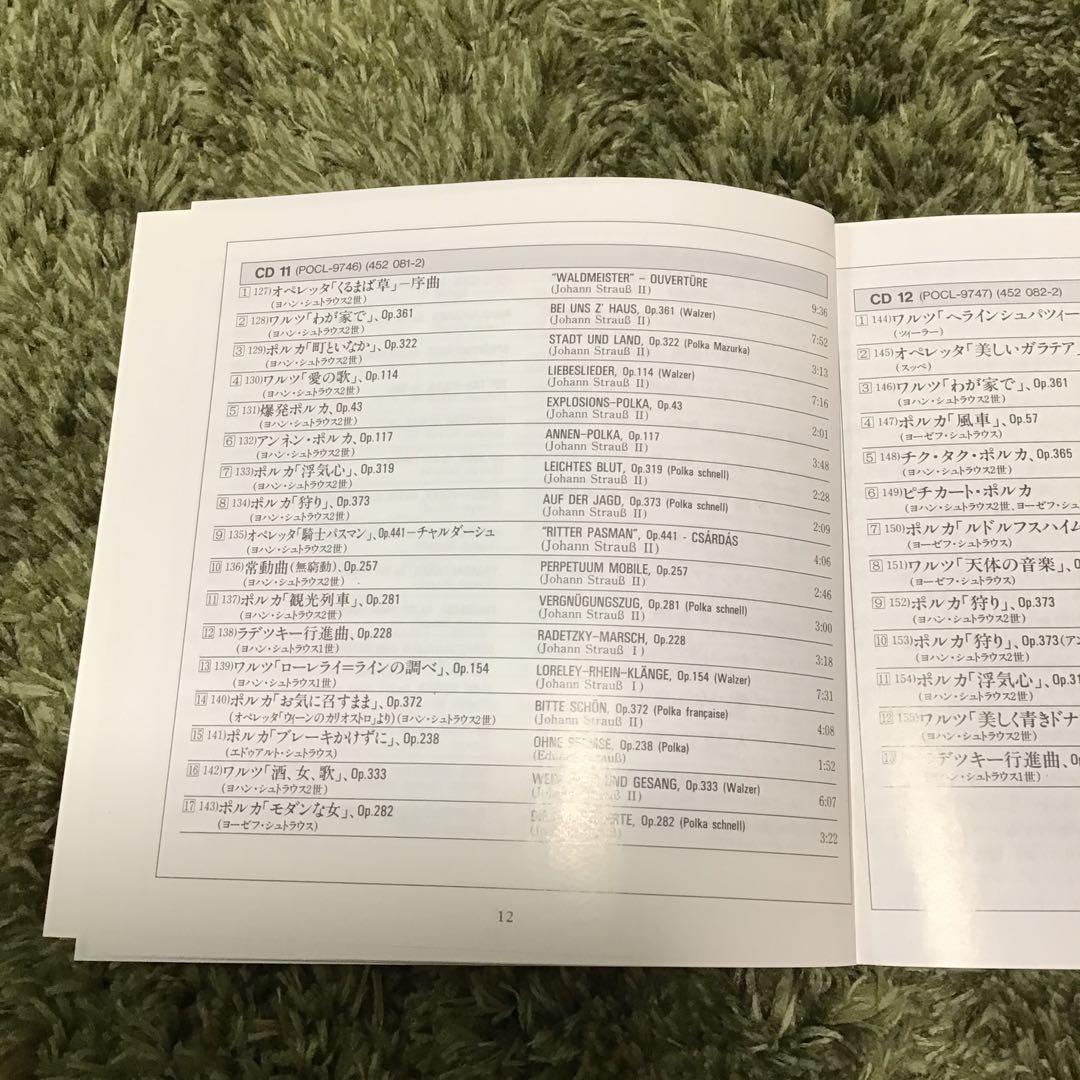 CD 11 (POCL-9746) (452 081-2)
1 127)オペレッタ「くるまば草」－序曲 "WALDMEISTER" – OUVERTÜRE
(ヨハン・シュトラウス2世) (Johann Strauß II) 9:36
2 128)ワルツ「わが家で」、Op.361 BEI UNS Z' HAUS, Op.361 (Walzer)
(ヨハン・シュトラウス2世) (Johann Strauß II) 7:52
3 129)ポルカ「町といなか」、Op.322 STADT UND LAND, Op.322 (Polka Mazurka)
(ヨハン・シュトラウス2世) (Johann Strauß II) 3:13
4 130)ワルツ「愛の歌」、Op.114 LIEBESLIEDER, Op.114 (Walzer)
(ヨハン・シュトラウス2世) (Johann Strauß II) 7:16
5 131)爆発ポルカ、Op.43 EXPLOSIONS-POLKA, Op.43
(ヨハン・シュトラウス2世) (Johann Strauß II) 2:01
6 132)アンネン・ポルカ、Op.117 ANNEN-POLKA, Op.117
(ヨハン・シュトラウス2世) (Johann Strauß II) 3:48
7 133)ポルカ「浮気心」、Op.319 LEICHTES BLUT, Op.319 (Polka schnell)
(ヨハン・シュトラウス2世) (Johann Strauß II) 2:28
8 134)ポルカ「狩り」、Op.373 AUF DER JAGD, Op.373 (Polka schnell)
(ヨハン・シュトラウス2世) (Johann Strauß II) 2:09
9 135)オペレッタ「騎士パスマン」、Op.441－チャルダーシュ "RITTER PASMAN", Op.441 - CSÁRDÁS
(ヨハン・シュトラウス2世) (Johann Strauß II) 4:06
10 136)常動曲(無窮動)、Op.257 PERPETUUM MOBILE, Op.257
(ヨハン・シュトラウス2世) (Johann Strauß II) 2:46
11 137)ポルカ「観光列車」、Op.281 VERGNÜGUNGSZUG, Op.281 (Polka schnell)
(ヨハン・シュトラウス2世) (Johann Strauß II) 3:00
12 138)ラデツキー行進曲、Op.228 RADETZKY-MARSCH, Op.228
(ヨハン・シュトラウス1世) (Johann Strauß I) 3:18
13 139)ワルツ「ローレライ=ラインの調べ」、Op.154 LORELEY-RHEIN-KLÄNGE, Op.154 (Walzer)
(ヨハン・シュトラウス1世) (Johann Strauß I) 7:31
14 140)ポルカ「お気に召すまま」、Op.372 BITTE SCHÖN, Op.372 (Polka française)
(オペレッタ「ウィーンのカリオストロ」より)(ヨハン・シュトラウス2世) (Johann Strauß II) 4:08
15 141)ポルカ「ブレーキかけずに」、Op.238 OHNE Op.238 (Polka)
(エドゥアルト・シュトラウス) 1:52
16 142)ワルツ「酒、女、歌」、Op.333 UND GESANG, Op.333 (Walzer)
(ヨハン・シュトラウス2世) (Johann Strauß II) 6:07
17 143)ポルカ「モダンな女」、Op.282 Op.282 (Polka schnell)
(ヨーゼフ・シュトラウス) 3:22
12
CD 12 (POCL-9747) (452 082-2)
1 144)ワルツ「ヘラインシュパツィー
(ツィーラー)
2 145)オペレッタ「美しいガラテア」
(スッペ)
3 146)ワルツ「わが家で」、Op.361
(ヨハン・シュトラウス2世)
4 147)ポルカ「風車」、Op.57
(ヨーゼフ・シュトラウス)
5 148)チク・タク・ポルカ、Op.365
(ヨハン・シュトラウス2世)
6 149)ピチカート・ポルカ
(ヨハン・シュトラウス2世、ヨーゼフ・シュ
7 150)ポルカ「ルドルフスハイム
(ヨーゼフ・シュトラウス)
8 151)ワルツ「天体の音楽」、
(ヨーゼフ・シュトラウス)
9 152)ポルカ「狩り」、Op.373
(ヨハン・シュトラウス2世)
10 153)ポルカ「狩り」、Op.373(アン
(ヨハン・シュトラウス2世)
11 154)ポルカ「浮気心」、Op.31
(ヨハン・シュトラウス2世)
12 155)ワルツ「美しく青きドナ
(ヨハン・シュトラウス2世)
ラデツキー行進曲、
ヨハン・シュトラウス1世)